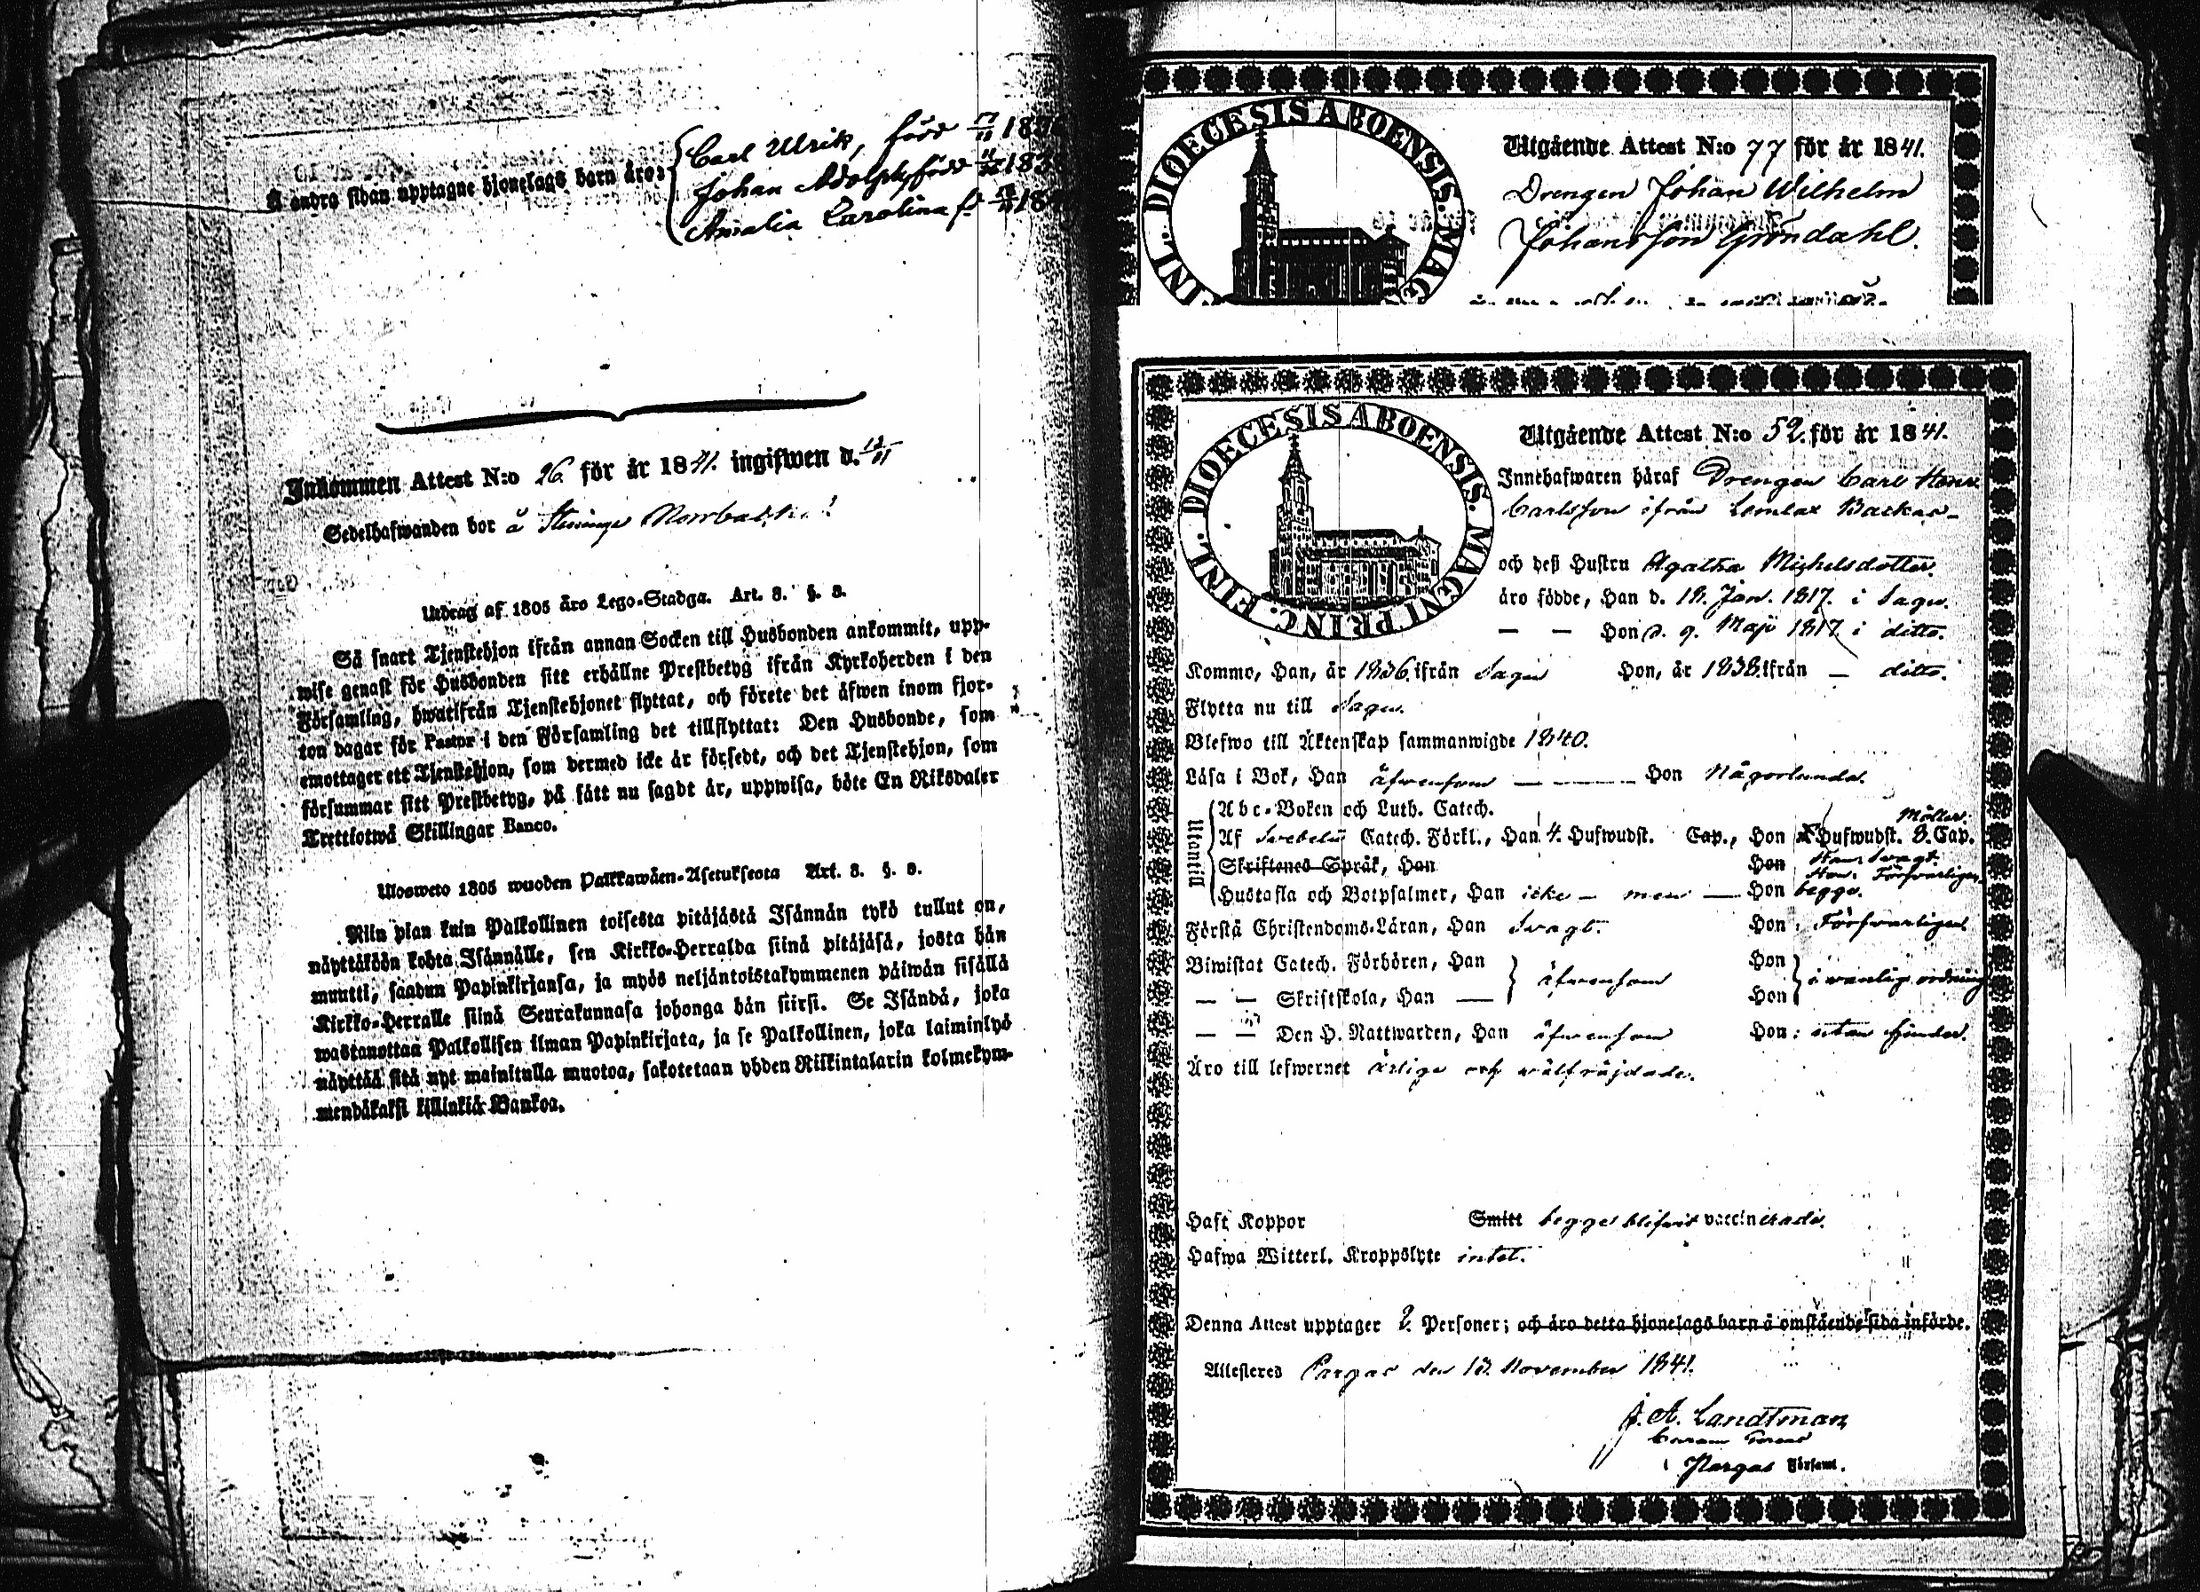 Å andra sidan upptagne hjonelags barn äro:
Carl Ulrik, född
Johan Adolph, född
Amalia Carolina f.
Inkommen Attest N:o 26 för år 1841. ingifwen d. 12/11
Sedelhafwanden bor å
Utdrag af 1805 års Lego-Stadga. Art. 3. §. 3.
Så snart Tjenstehjon ifrån annan Socken till Husbonden ankommit, upp-
wise genast för Husbonden sitt erhållne Prestbetyg ifrån Kyrkoherden i den
Församling, hwarifrån Tjenstehjonet flyttat, och förete det äfwen inom fjor-
ton dagar för Pastor i den Församling det tillflyttat: Den Husbonde, som
emottager ett Tjenstehjon, som dermed icke är försedt, och det Tjenstehjon, som
försummar sitt Prestbetyg, på sätt nu sagdt är, uppwisa, böte En Riksdaler
Trettiotwå Skillingar Banco.
Ulosweto 1805 wuoden Palkkawäen-Asetuksesta Art. 3. §. 3.
Niin pian kuin Palkollinen toisesta pitäjästä Isännän tykö tullut on,
näyttäköön kohta Isännälle, sen Kirkko-Herralda siinä pitäjäsä, josta hän
muutti, saadun Papinkirjansa, ja myös neljäntoistakymmenen päiwän sisällä
Kirkko-Herralle siinä Seurakunnasa johonga hän siirsi. Se Isändä, joka
wastanottaa Palkollisen ilman Papinkirjata, ja se Palkollinen, joka laiminlyö
näyttää sitä nyt mainitulla muotoa, sakotetaan yhden Riikintalarin kolmekym-
mendäkaksi killinkiä Bankoa.
DIOECESIS ABOENSIS. MAG
INL.
Utgående Attest N:o 77 för år 1841.
Drengen Johan Wilhelm
Johansson Gröndahl.
DIOECESIS ABOENSIS. MAGNI PRINC. FINL.
Utgående Attest N:o 52. för år 1841.
Innehafwaren häraf Drengen Carl Henr.
Carlsson ifrån Lemlax Backas-
och deß Hustru Agatha Michelsdotter.
äro födde, Han d. 18. Jan. 1817. i Sagu.
— — Hon d. 9. Maji 1817. i ditto.
Kommo, Han, år 1836. ifrån Sagu Hon, år 1838. ifrån — ditto.
Flytta nu till Sagu.
Blefwo till Äktenskap sammanwigde 1840.
Läsa i Bok, Han äfwensom — — Hon Någorlunda.
Utantill
Abc-Boken och Luth. Catech.
Möller.
Af Svebelii Catech. Förkl., Han 4. Hufwudst. Cap., Hon Hufwudst. 8. Cap.
Skriftenes Språk, Han Hon
Han: Svagt.
Hon: Försvarligen.
Hustafla och Botpsalmer, Han icke — men — Hon begge.
Förstå Christendoms-Läran, Han Svagt. Hon: Försvarligen
Biwistat Catech. Förhören, Han äfwensom Hon i wanlig ordning
— — Skriftskola, Han — Hon
— — Den H. Nattwarden, Han äfwensom Hon: utan hinder.
Äro till lefwernet ärliga och wälfräjdade.
Haft Koppor Smitt begge blifwit vaccinerade.
Hafwa Witterl. Kroppslyte intet.
Denna Attest upptager 2. Personer; och äro detta hjonelags barn å omstående sida införde.
Attesteres Pargas den 13. November 1841.
J. A. Landtman
i Pargas Församl.